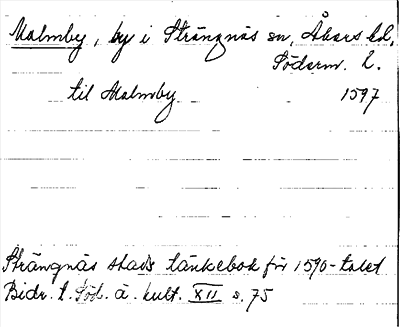 Malmby, by i Strängnäs sn, Åkers hd,
Söderm. l.
til Malmby 1597
Strängnäs stads tänkebok för 1590-talet
Bidr. t. Söd. ä. kult. XII s. 75